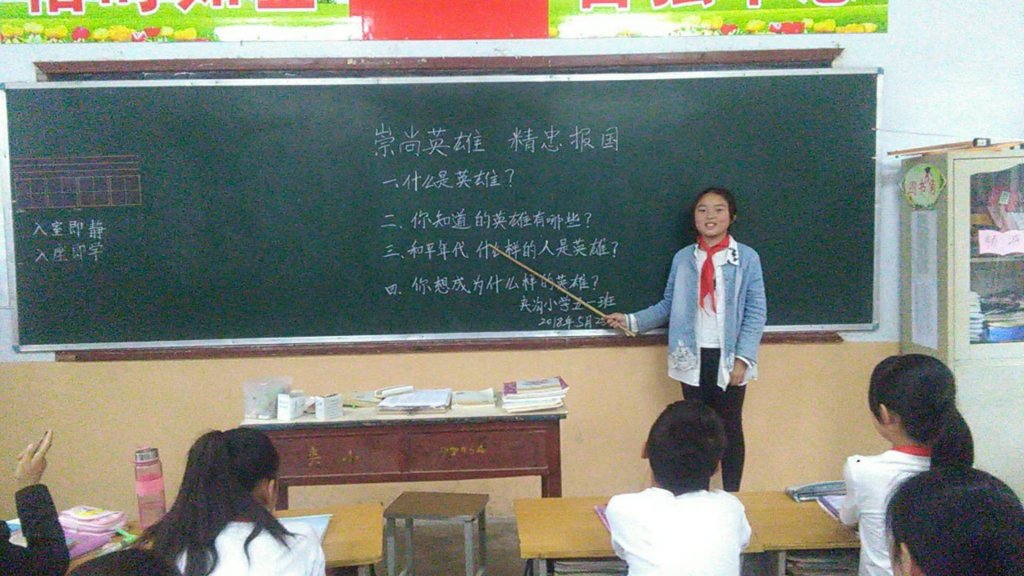 崇尚英雄 精忠报国
一.什么是英雄?
二.你知道的英雄有哪些?
三.和平年代什么样的人是英雄?
四.你想成为什么样的英雄?
小学五一班
2018年5月2
入室即静
入座即学
图书角
夹小